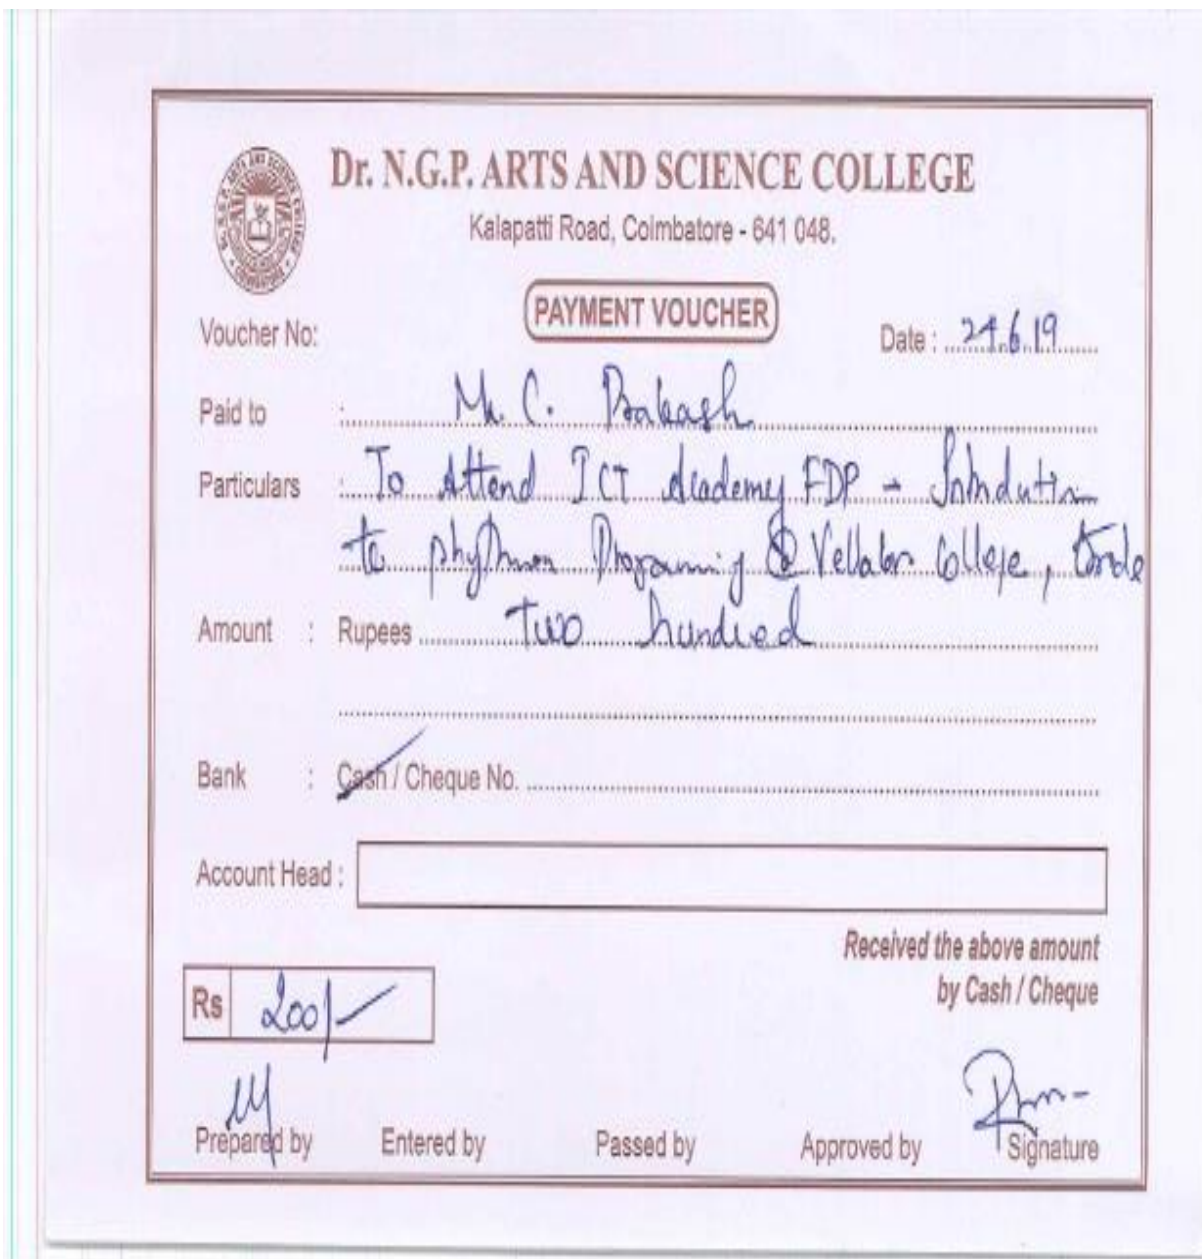 Dr. N.G.P. ARTS AND SCIENCE COLLEGE
Kalapatti Road, Coimbatore - 641 048.
PAYMENT VOUCHER
Voucher No:
Date : 24.6.19
Paid to : Mr. C. Prakash
Particulars : To Attend ICT Academy FDP -
to Programing @ College,
Amount : Rupees Two hundred
Bank : Cash / Cheque No.
Account Head :
Received the above amount
by Cash / Cheque
Rs 200/-
Prepared by Entered by Passed by Approved by Signature